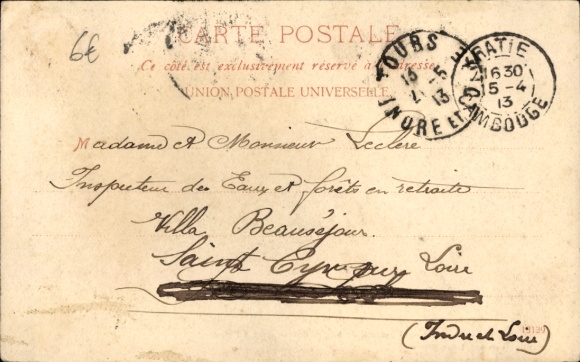 6€
CARTE POSTALE
Ce côté est exclusivement réservé à l'adresse
UNION POSTALE UNIVERSELLE
TOURS
13
5
13
INDRE ET
KRATIE
16 30
15-4
13
CAMBODGE
Madame et Monsieur Leclère
Inspecteur des Eaux et forêts en retraite
Villa Beauséjour
Saint Cyr sur Loire
(Indre et Loire)